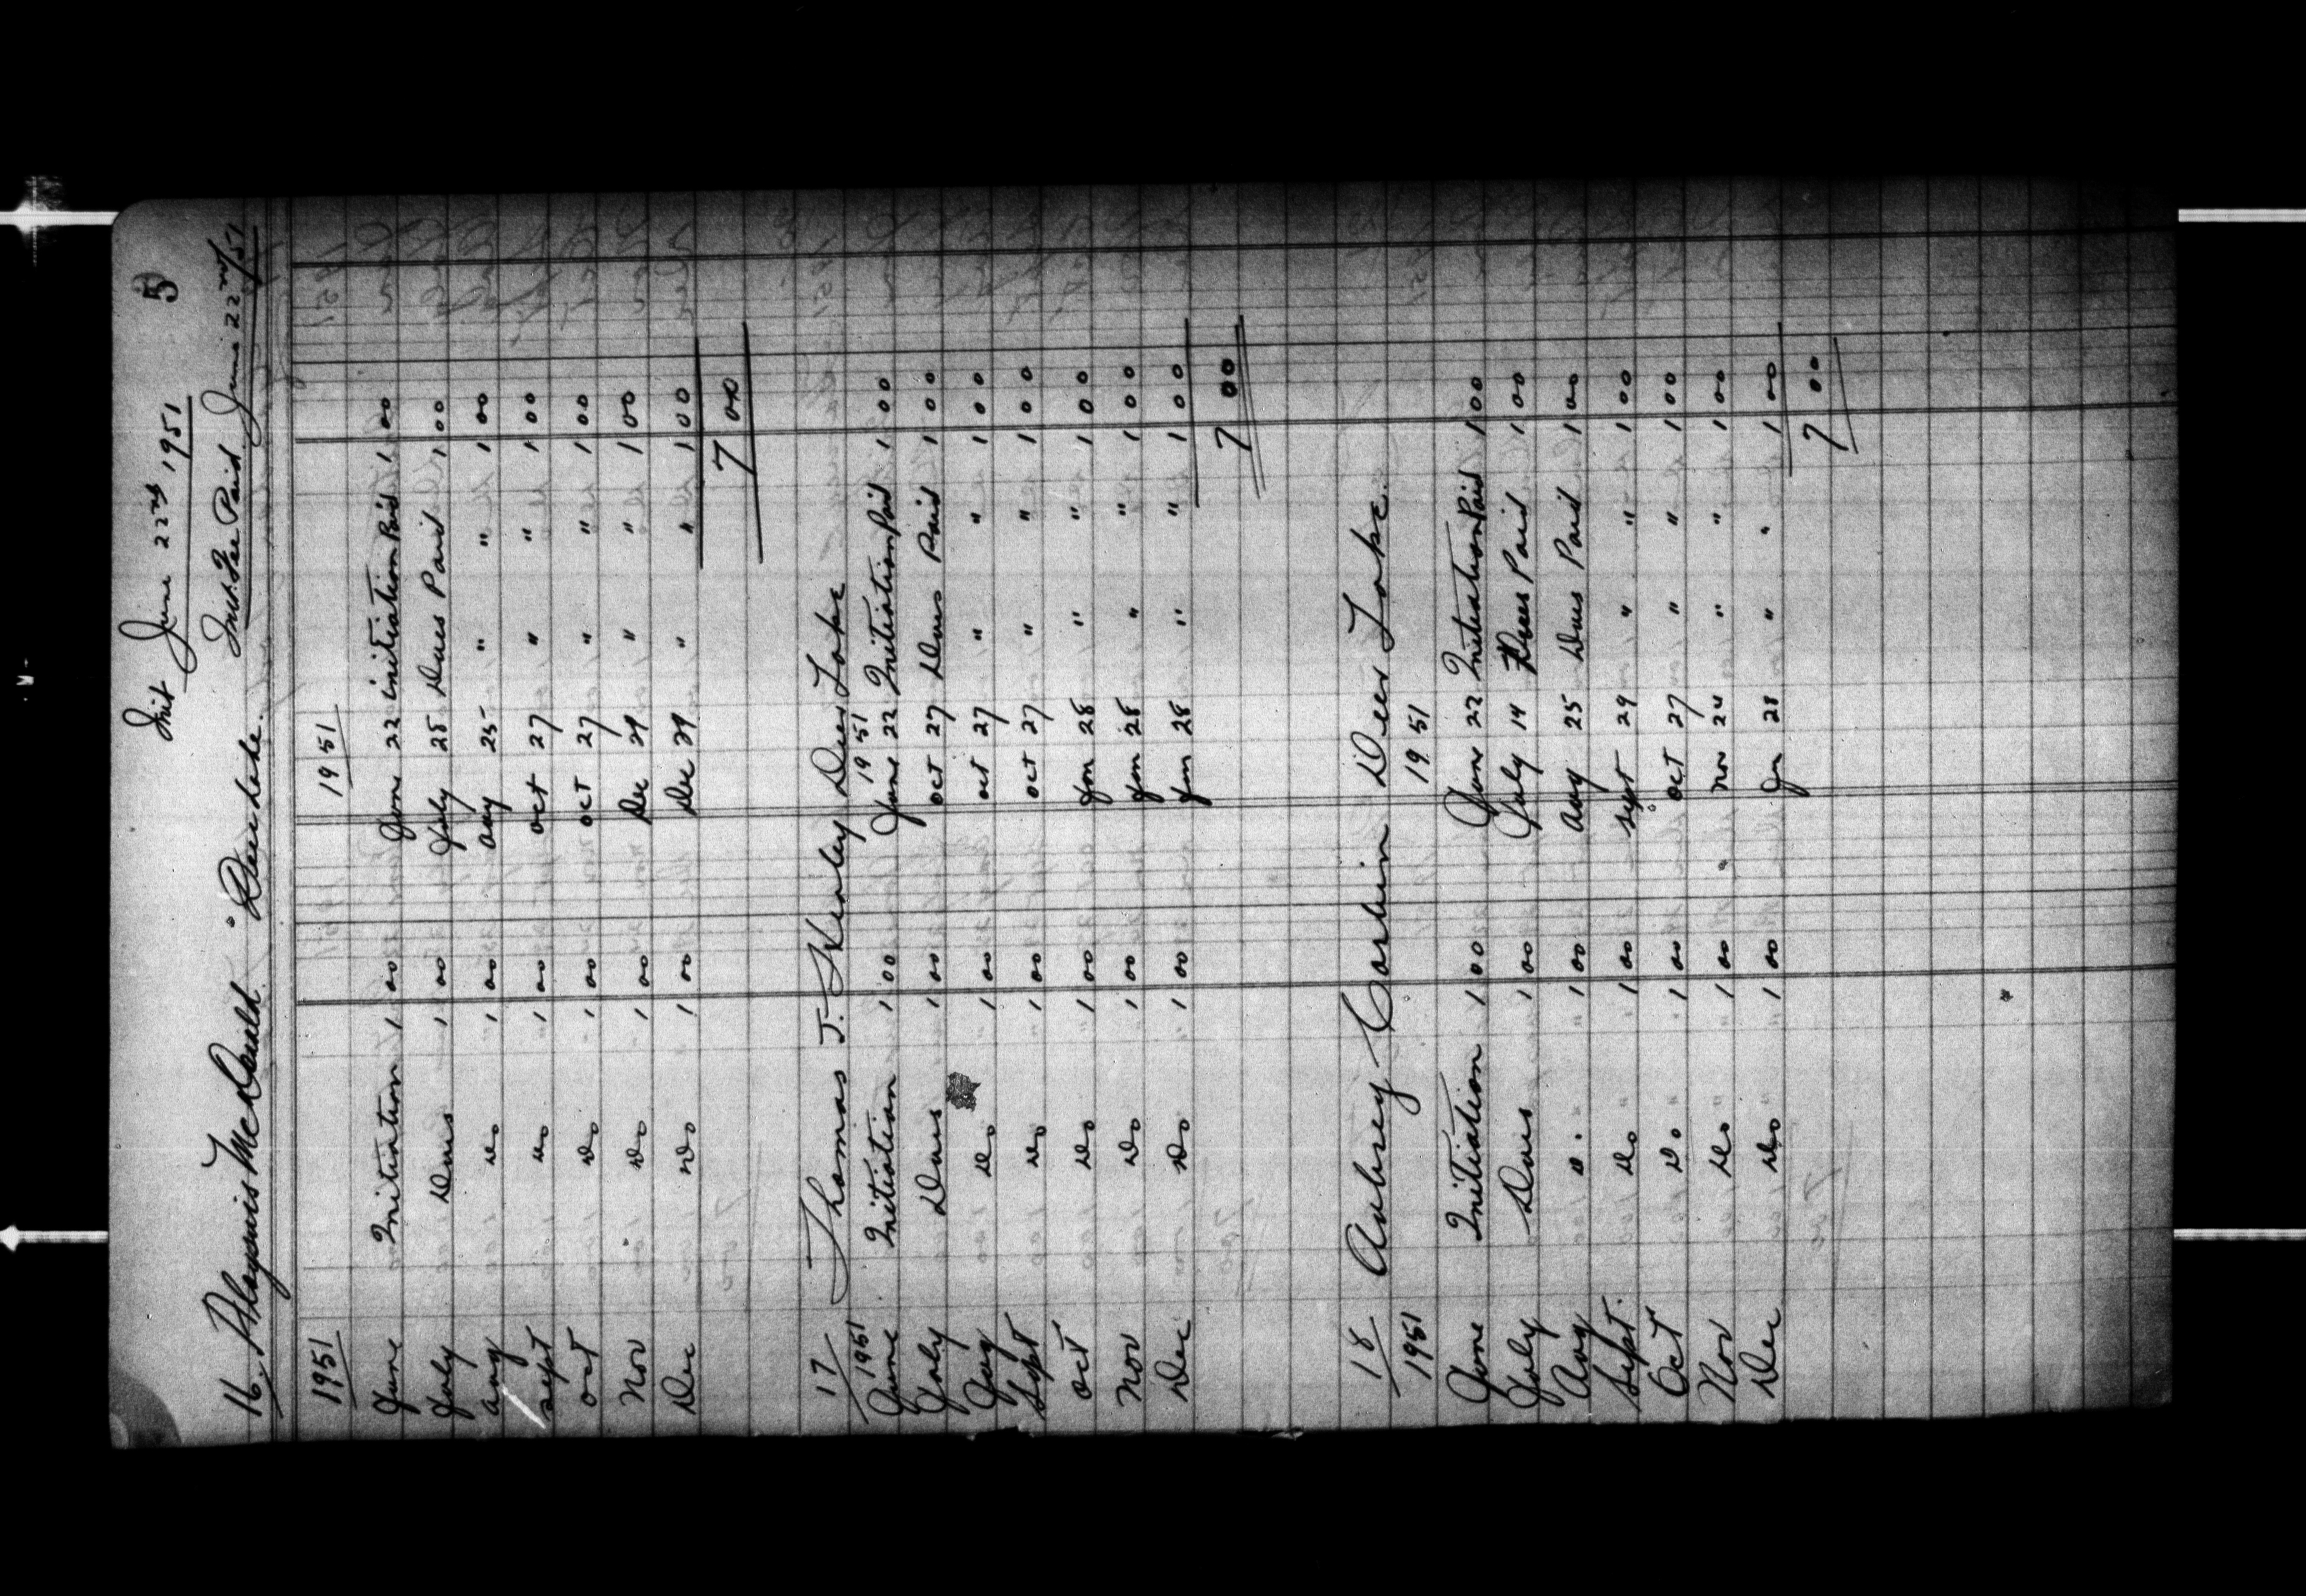 5
Init June 22nd 1951
16. Aloysius McDonald Deer Lake. Init. Fee Paid June 22nd/51
1951 1951
June Initiation 1 00 June 22 initiation Paid 1 00
July Dues 1 00 July 28 Dues Paid 1 00
Aug Do 1 00 Aug 25 " " 1 00
Sept Do 1 00 Oct 27 " " 1 00
Oct Do 1 00 Oct 27 " " 1 00
Nov Do 1 00 Dec 29 " " 1 00
Dec Do 1 00 Dec 29 " " 1 00
7 00
17 Thomas J. Kenley Deer Lake
1951 1951
June Initiation 1 00 June 22 Initiation Paid 1 00
July Dues 1 00 Oct 27 Dues Paid 1 00
Aug Do 1 00 Oct 27 " " 1 00
Sept Do 1 00 Oct 27 " " 1 00
Oct Do 1 00 Jan 28 " " 1 00
Nov Do 1 00 Jan 28 " " 1 00
Dec Do 1 00 Jan 28 " " 1 00
7 00
18 Aubrey Corbin Deer Lake.
1951 1951
June Initiation 1 00 June 22 Initiation Paid 1 00
July Dues 1 00 July 14 Dues Paid 1 00
Aug Do 1 00 Aug 25 Dues Paid 1 00
Sept. Do 1 00 Sept 29 " " 1 00
Oct Do 1 00 Oct 27 " " 1 00
Nov Do 1 00 Nov 24 " " 1 00
Dec Do 1 00 Jan 28 " " 1 00
7 00